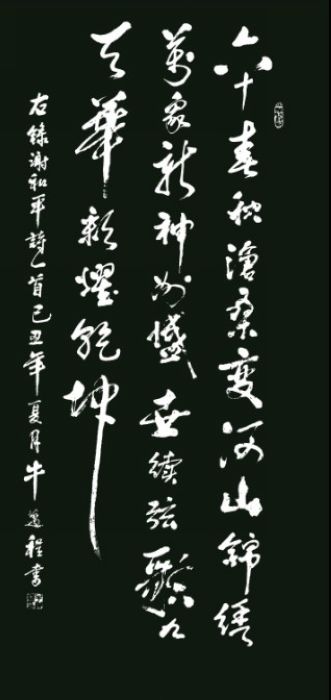 六十春秋滄桑變河山錦繡
萬象新神州盛世續弦歌九
天華耀乾坤
右錄謝和平詩一首己丑年夏月牛程書